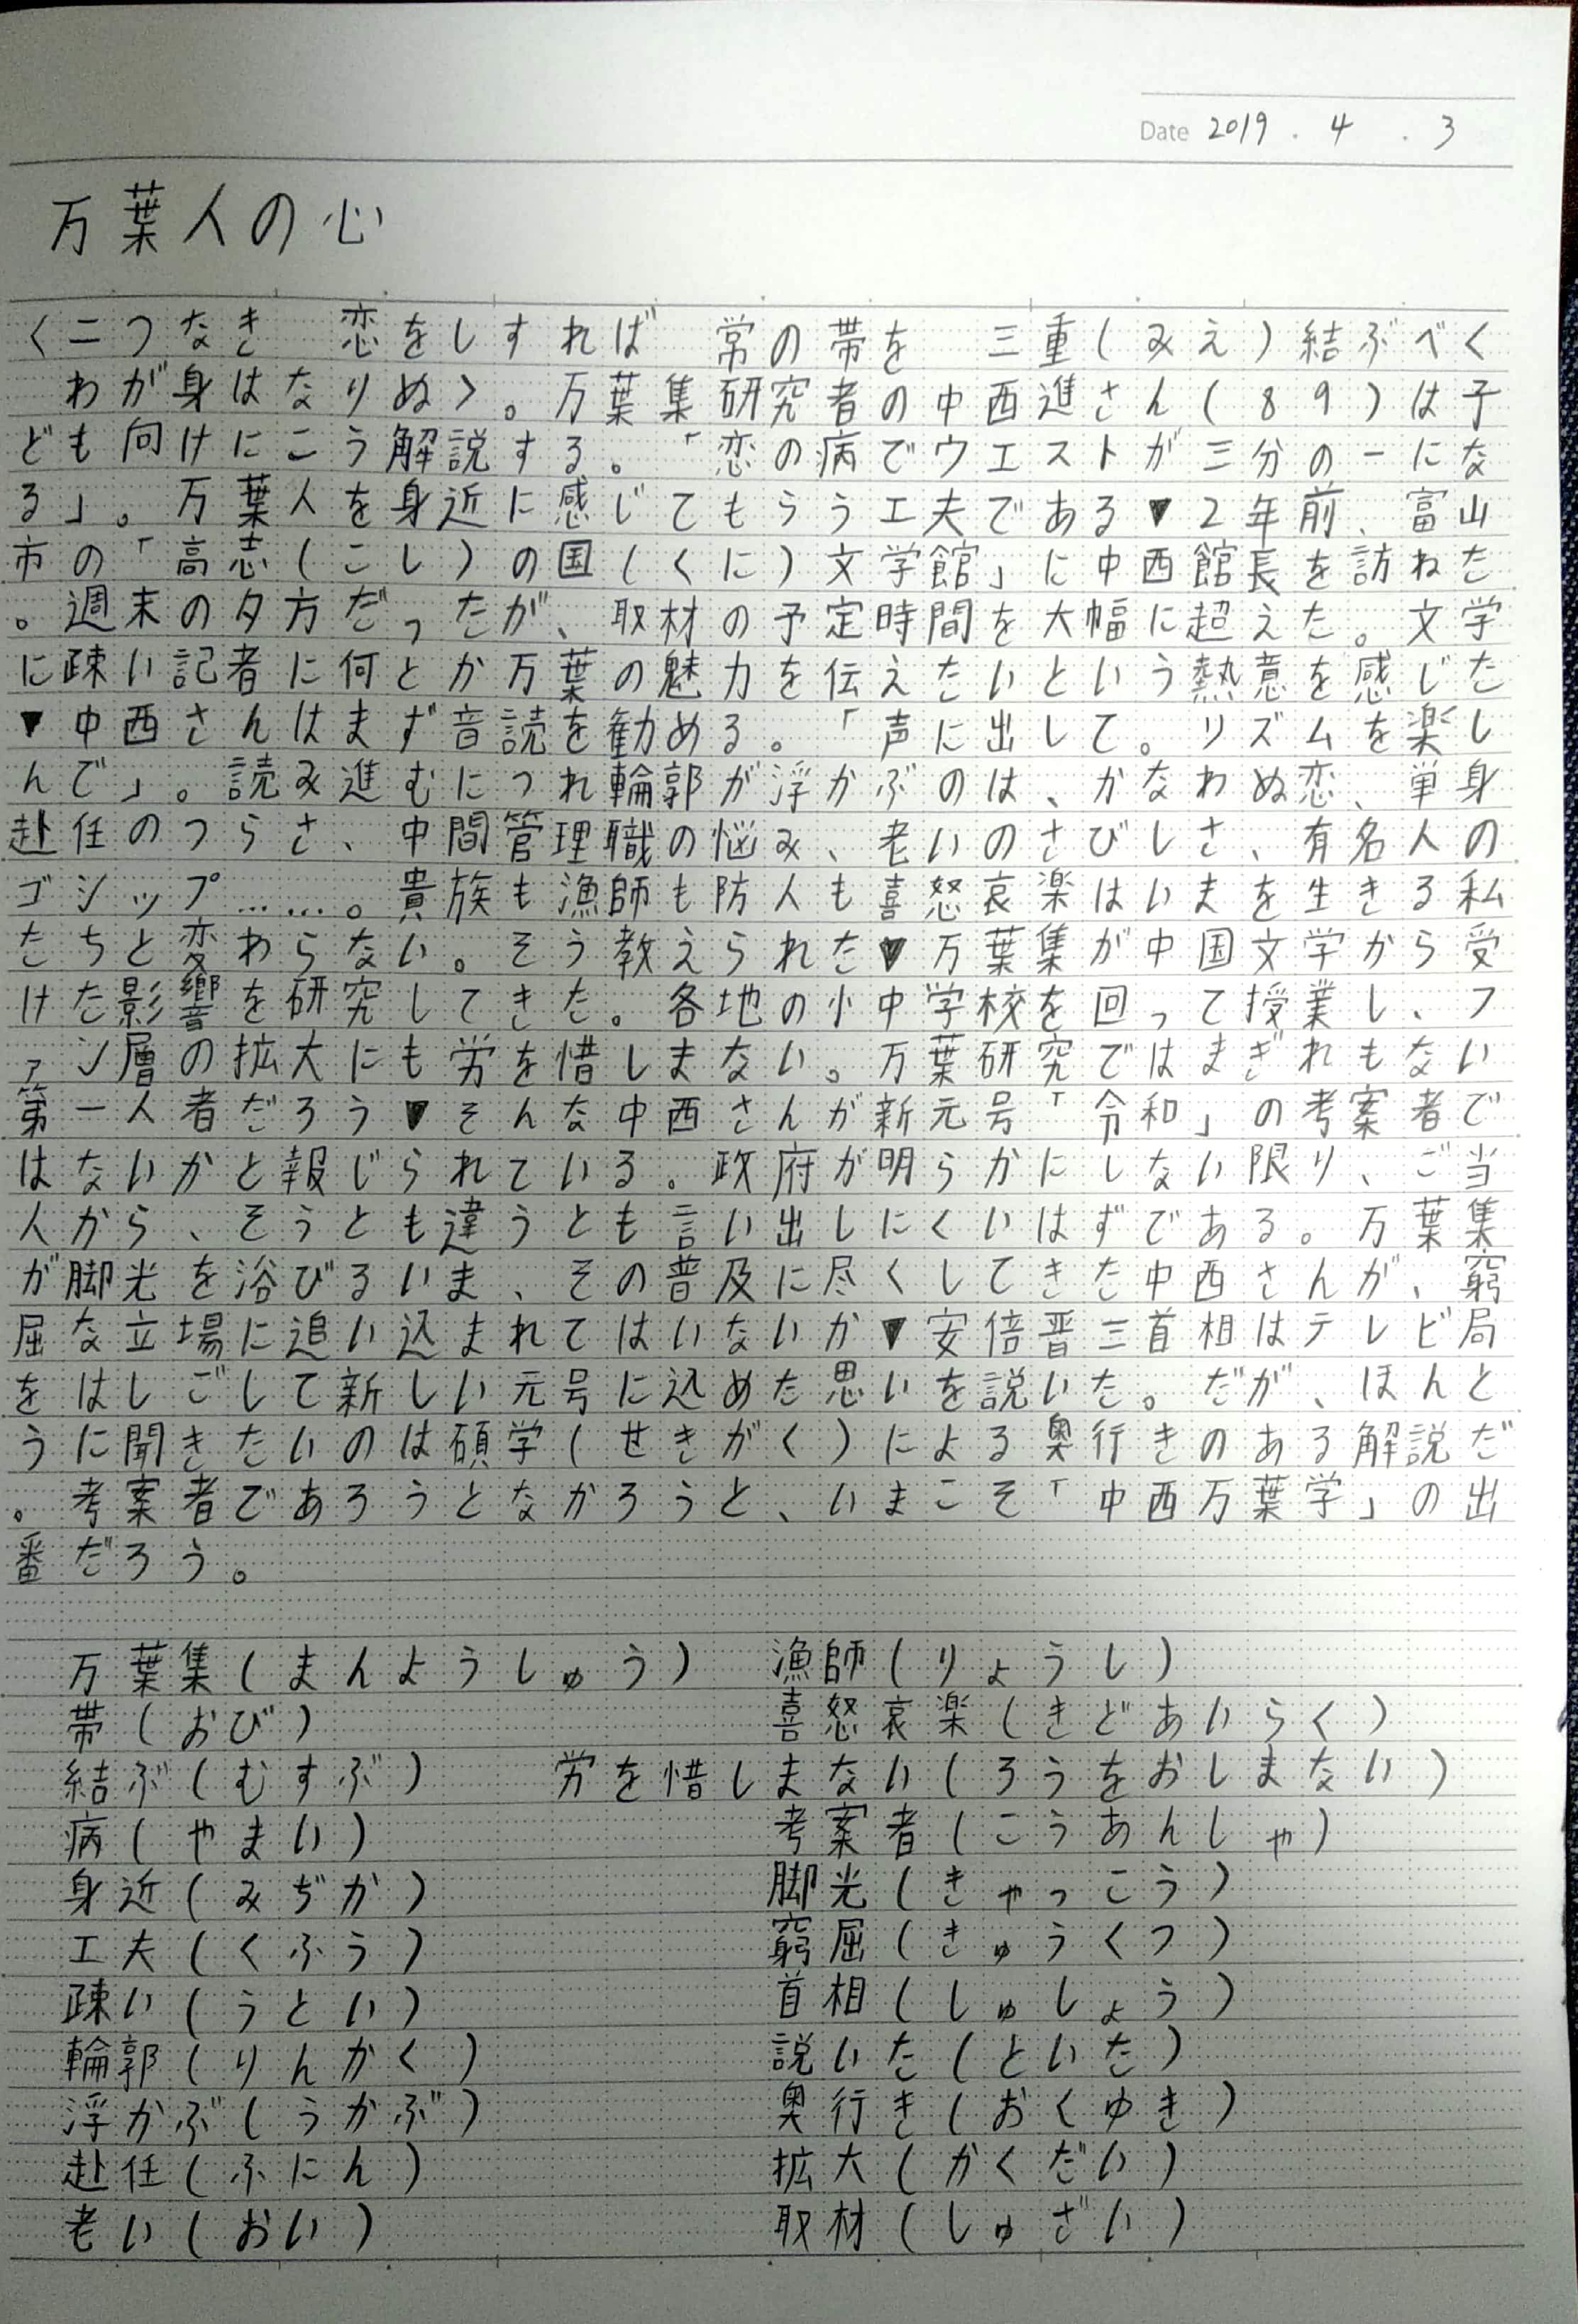 Date 2019 . 4 . 3
万葉人の心
〈二つなき　恋をしすれば　常の帯を　三重(みえ)結ぶべく
　わが身はなりぬ〉。万葉集研究者の中西進さん(89)は子
ども向けにこう解説する。「恋の病でウエストが三分の一にな
る」。万葉人を身近に感じてもらう工夫である▼2年前、富山
市の「高志(こし)の国(くに)文学館」に中西館長を訪ねた
。週末の夕方だったが、取材の予定時間を大幅に超えた。文学
に疎い記者に何とか万葉の魅力を伝えたいという熱意を感じた
▼中西さんはまず音読を勧める。「声に出して。リズムを楽し
んで」。読み進むにつれ輪郭が浮かぶのは、かなわぬ恋、単身
赴任のつらさ、中間管理職の悩み、老いのさびしさ、有名人の
ゴシップ……。貴族も漁師も防人も喜怒哀楽はいまを生きる私
たちと変わらない。そう教えられた▼万葉集が中国文学から受
けた影響を研究してきた。各地の小中学校を回って授業し、フ
ァン層の拡大にも労を惜しまない。万葉研究ではまぎれもない
第一人者だろう▼そんな中西さんが新元号「令和」の考案者で
はないかと報じられている。政府が明らかにしない限り、ご当
人から、そうとも違うとも言い出しにくいはずである。万葉集
が脚光を浴びるいま、その普及に尽くしてきた中西さんが、窮
屈な立場に追い込まれてはいないか▼安倍晋三首相はテレビ局
をはしごして新しい元号に込めた思いを説いた。だが、ほんと
うに聞きたいのは碩学(せきがく)による奥行きのある解説だ
。考案者であろうとなかろうと、いまこそ「中西万葉学」の出
番だろう。
万葉集(まんようしゅう)　漁師(りょうし)
帯(おび)　喜怒哀楽(きどあいらく)
結ぶ(むすぶ)　労を惜しまない(ろうをおしまない)
病(やまい)　考案者(こうあんしゃ)
身近(みぢか)　脚光(きゃっこう)
工夫(くふう)　窮屈(きゅうくつ)
疎い(うとい)　首相(しゅしょう)
輪郭(りんかく)　説いた(といた)
浮かぶ(うかぶ)　奥行き(おくゆき)
赴任(ふにん)　拡大(かくだい)
老い(おい)　取材(しゅざい)